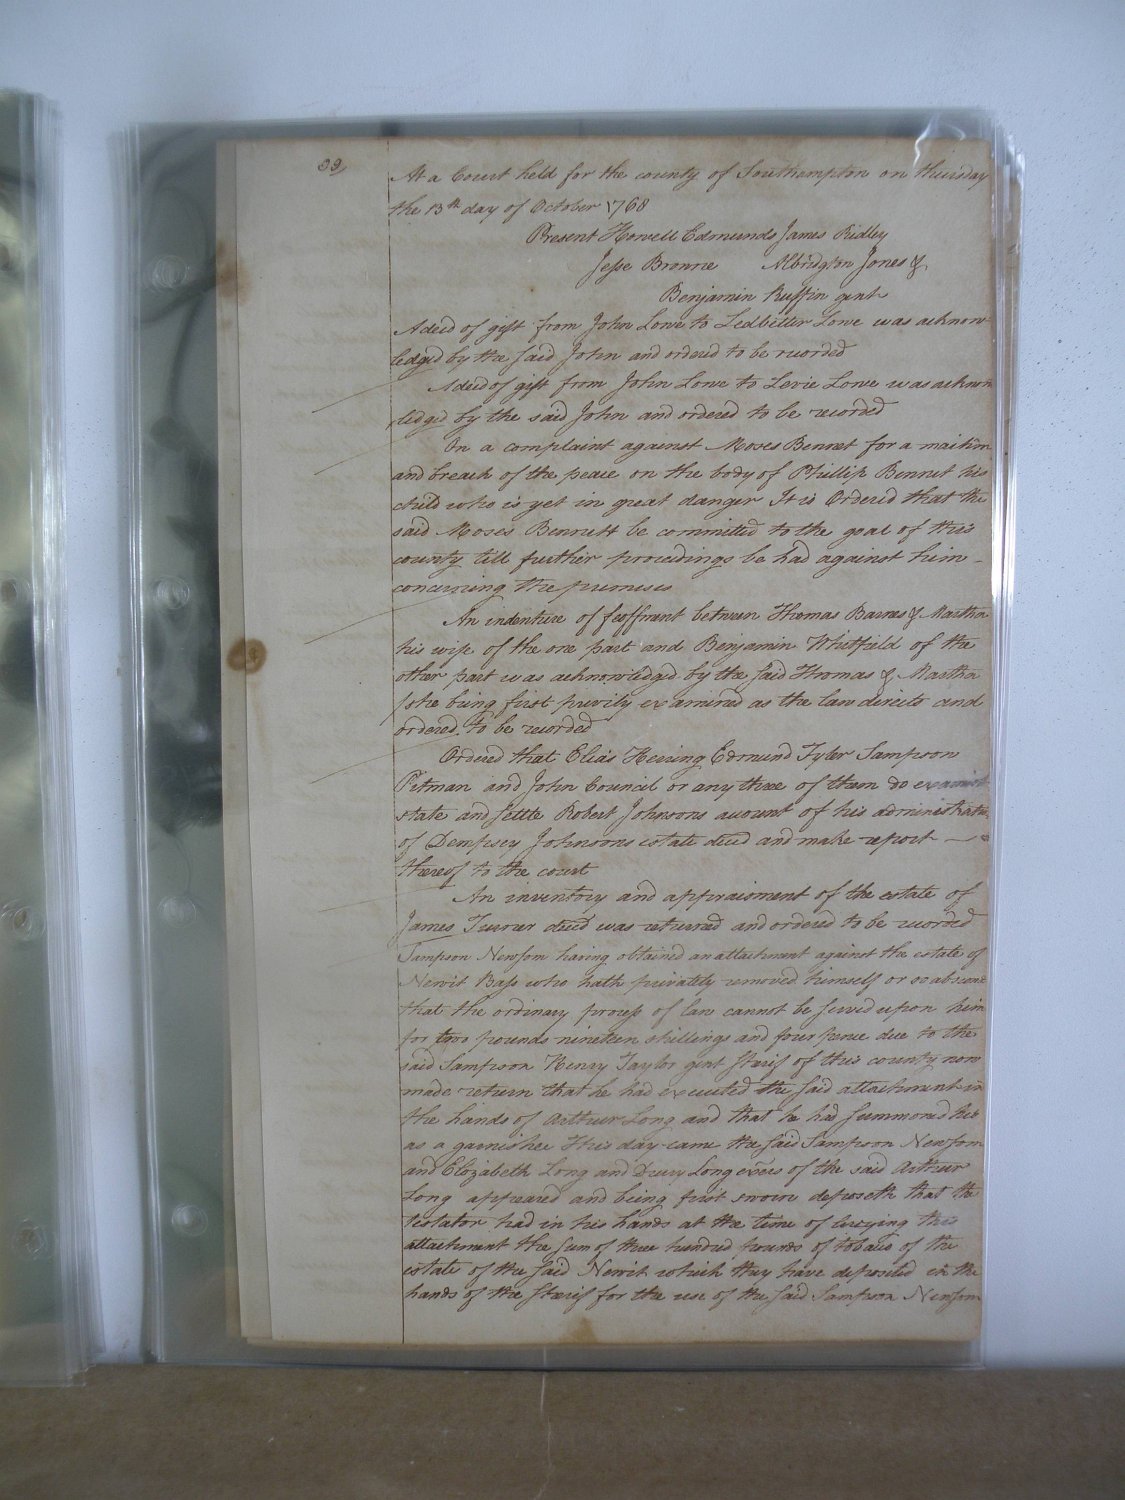 33
At a Court held for the county of Southampton on thursday
the 13th day of October 1768
Present Howell Edmunds James Ridley
Jesse Browne Albridgton Jones &
Benjamin Ruffin gent
A deed of gift from John Lowe to Ledbetter Lowe was acknow
ledged by the said John and ordered to be recorded
A deed of gift from John Lowe to Levie Lowe was acknow
ledged by the said John and ordered to be recorded
On a complaint against Moses Bennet for a maihim
and breach of the peace on the body of Phillip Bennet his
child who is yet in great danger It is Ordered that the
said Moses Bennett be committed to the goal of this
county till further proceedings be had against him
concerning the premises
An indenture of feoffment between Thomas Barnes & Martha
his wife of the one part and Benjamin Whitfield of the
other part was acknowledged by the said Thomas & Martha
she being first privily examined as the law directs and
ordered to be recorded
Ordered that Elias Herring Edmund Tyler Sampson
Pitman and John Council or any three of them do examine
state and settle Robert Johnsons account of his administration
of Dempsey Johnsons estate deced and make report
thereof to the court
An inventory and appraisment of the estate of
James Turner deced was returned and ordered to be recorded
Sampson Newsom having obtained an attachment against the estate of
Newit Bass who hath privately removed himself or so absconds
that the ordinary process of law cannot be served upon him
for two pounds nineteen shillings and four pence due to the
said Sampson Henry Taylor gent Sherif of this county now
made return that he had executed the said attachment in
the hands of Arthur Long and that he had summoned him
as a garnishee This day came the said Sampson Newsom
and Elozabeth Long and Drury Long exers of the said Arthur
Long appeared and being first sworn deposeth that the
testator had in his hands at the time of levying this
attachment the sum of three hundred pounds of tobaco of the
estate of the said Newit which they have deposited in the
hands of the Sherif for the use of the said Sampson Newsom